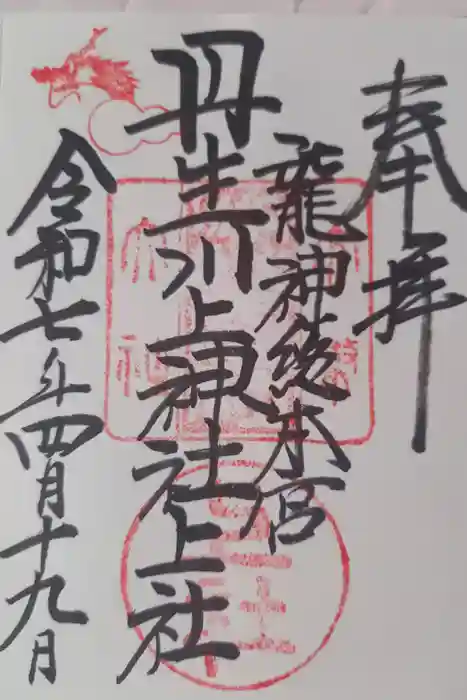 奉拝
龍神総本宮
丹生川上神社上社
令和七年四月十九月